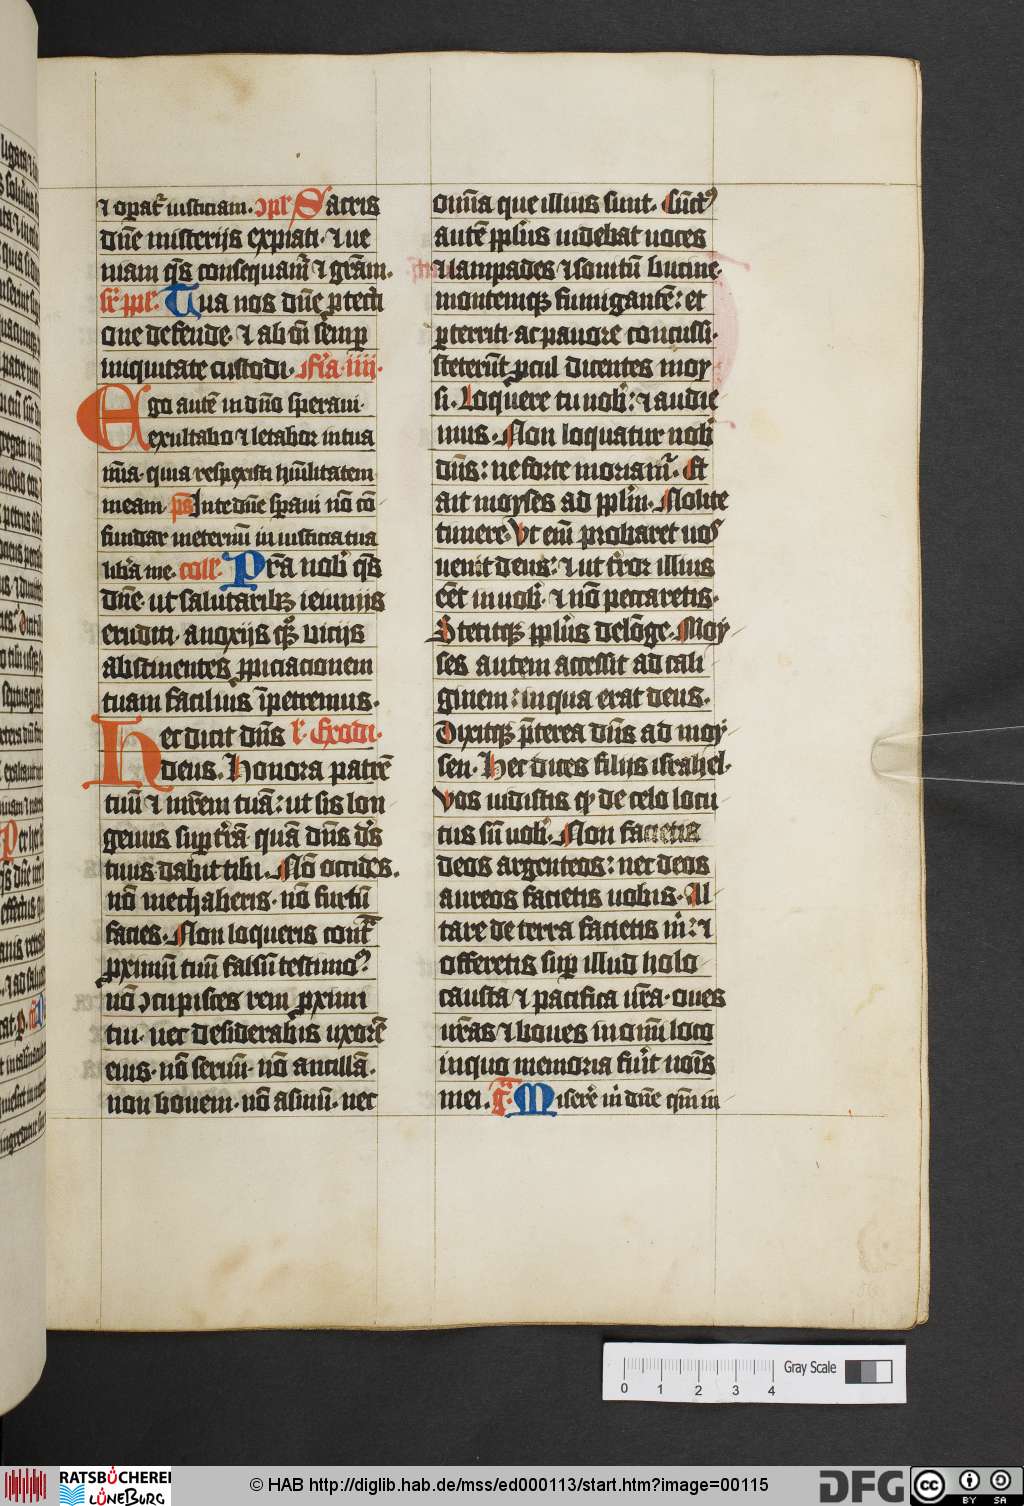 ⁊ op̲at᷑ iusticiam. ↄpl᷑ Sacris
dn̄e misterijs expiati. ⁊ ue
niam q̄s consequam᷑ ⁊ gr̄am.
sr̄ ppl᷑. Tua nos dn̄e p̲tecti
one defende. ⁊ ab oī semp̲
iniquitate custodi. Fr̄ia iiii.
Ego autē in dn̄o speraui.
exultabo ⁊ letabor in tua
mīa. quia respexisti hūilitatem
meam. ps̄ In te dn̄e sp̲aui nō cō
fundar in eternū in iusticia tua
lib̲a me. coll᷑. Pr̄a nob᷑ q̄s
dn̄e. ut salutarib⁊ ieiunijs
eruditi. a noxijs q̄ vicijs
abstinentes p̲piciacionem
tuam facilius īpetremus.
Hec dicit dn̄s l᷑. Exodi.
deus. Honora patrē
tuū ⁊ mr̄em tuā: ut sis lon
geuus sup̲ tr̄ā quā dn̄s ds̄
tuus dabit tibi. Nō occides.
nō mechaberis. nō furtū
facies. Non loqueris cont̄ᵃ
p̲ximū tuū falsū testimoꝰ.
nō ↄcupisces rem p̲ximi
tui. nec desiderabis uxorē
eius. nō seruū. nō ancillā.
non bouem. nō asinū. nec
omīa que illius sunt. Cūctꝰ
autē ppl̄us uidebat uoces
⁊ lampades ⁊ sonitū bucine.
montemq⁊ fumigantē: et
p̲territi. ac pauore concussi.
steterūt p̲cul dicentes moy
si. Loquere tu nob᷑: ⁊ audie
mus. Non loquatur nob᷑
dn̄s: ne forte moriam᷑. Et
ait moyses ad ppl̄m. Nolite
timere. Vt em̄ probaret uos
uenit deus: ⁊ ut t̄ror illius
eēt in uob᷑. ⁊ nō peccaretis.
Stetitq⁊ ppl̄us de lōge. Moy
ses autem accessit ad cali
ginem: in qua erat deus.
Dixitq⁊ p̄terea dn̄s ad moy
sen. Hec dices filijs israhel.
Vos uidistis qꝫ de celo locu
tus sū uob᷑. Non facietis
deos argenteos: nec deos
aureos facietis uobis. Al
tare de terra facietis m᷑: ⁊
offeretis sup̲ illud holo
causta ⁊ pacifica ur̄a. oues
ur̄as ⁊ boues in omī loco
in quo memoria fu᷑it nōis
mei. gᵃ. Miser̄e m᷑ dn̄e qm̄ in
Gray Scale
0 1 2 3 4
RATSBÜCHEREI
LÜNEBURG
© HAB http://diglib.hab.de/mss/ed000113/start.htm?image=00115
DFG
cc BY SA